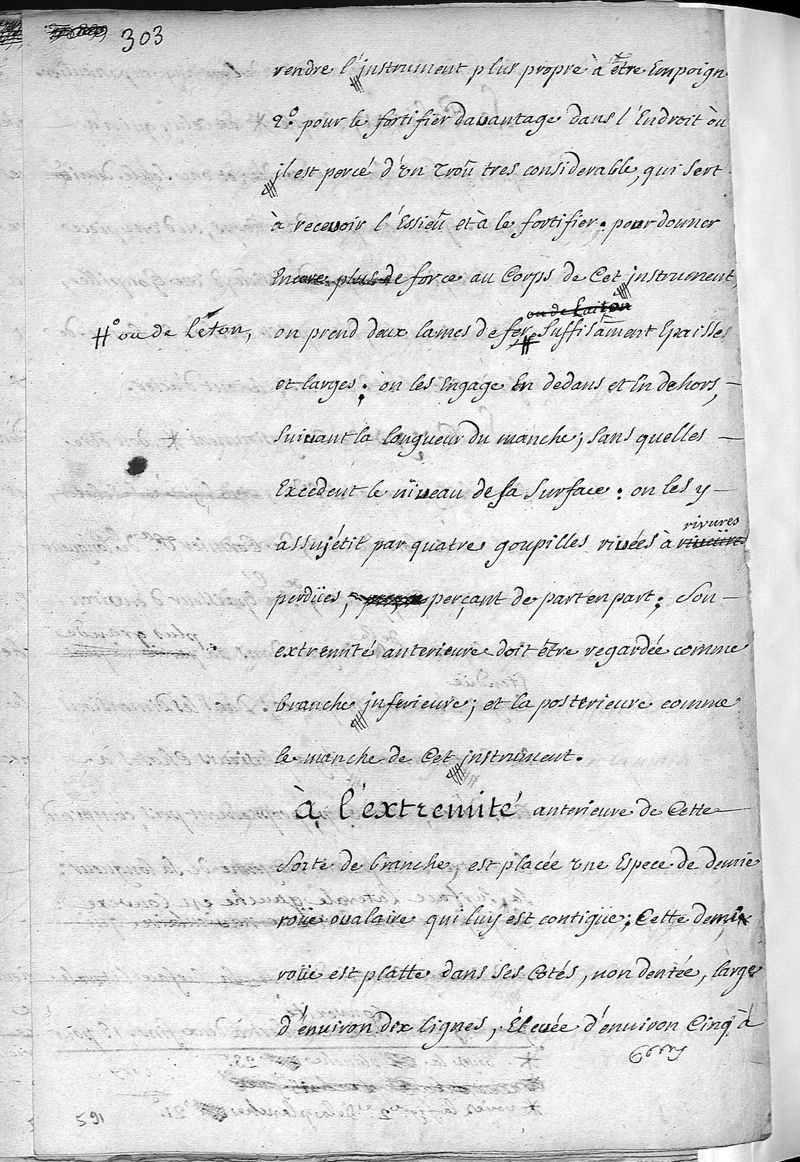 303
rendre l'instrument plus propre à être Empoign
2° pour le fortifier davantage dans l'Endroit où
il est percé d'un Troû tres considerable, qui sert
à recevoir l'Essieû et à le fortifier. pour donner
Encore plus de force au Corps de Cet instrument,
ou de Laiton
#° ou de Léton,
on prend deux lames de fer suffisament Epaisses
et larges; on les Engage En dedans et En dehors,
suivant la longueur du manche; sans quelles
Excédent le niveau de sa surface: on les y
assujétit par quatre goupilles rivées à rivures
perdües, perçant de part en part; Son
extremité anterieure doit être regardée comme
branche inferieure; et la posterieure comme
le manche de Cet instrument.
à l'extremité anterieure de Cette
Sorte de branche, est placée une Espece de demie
roüe ovalaire qui luy est contigüe; Cette demi
roüe est platte dans ses côtés, non dentée, large
d'environ dix lignes, Élevée d'environ Cinq à
591